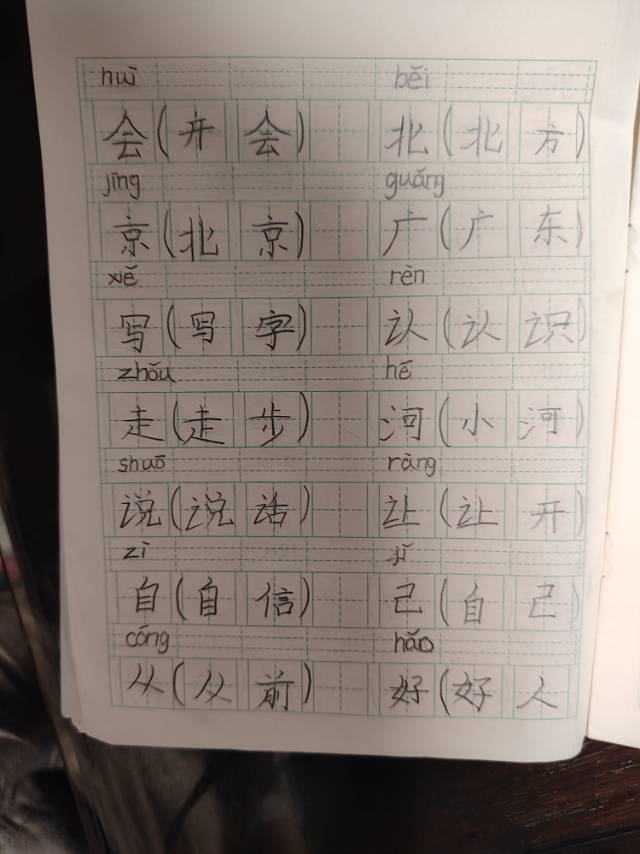 huì běi
会(开会) 北(北方)
jīng guǎng
京(北京) 广(广东)
xiě rèn
写(写字) 认(认识)
zhǒu hē
走(走步) 河(小河)
shuō ràng
说(说话) 让(让开)
zì jǐ
自(自信) 己(自己)
cóng hǎo
从(从前) 好(好人)